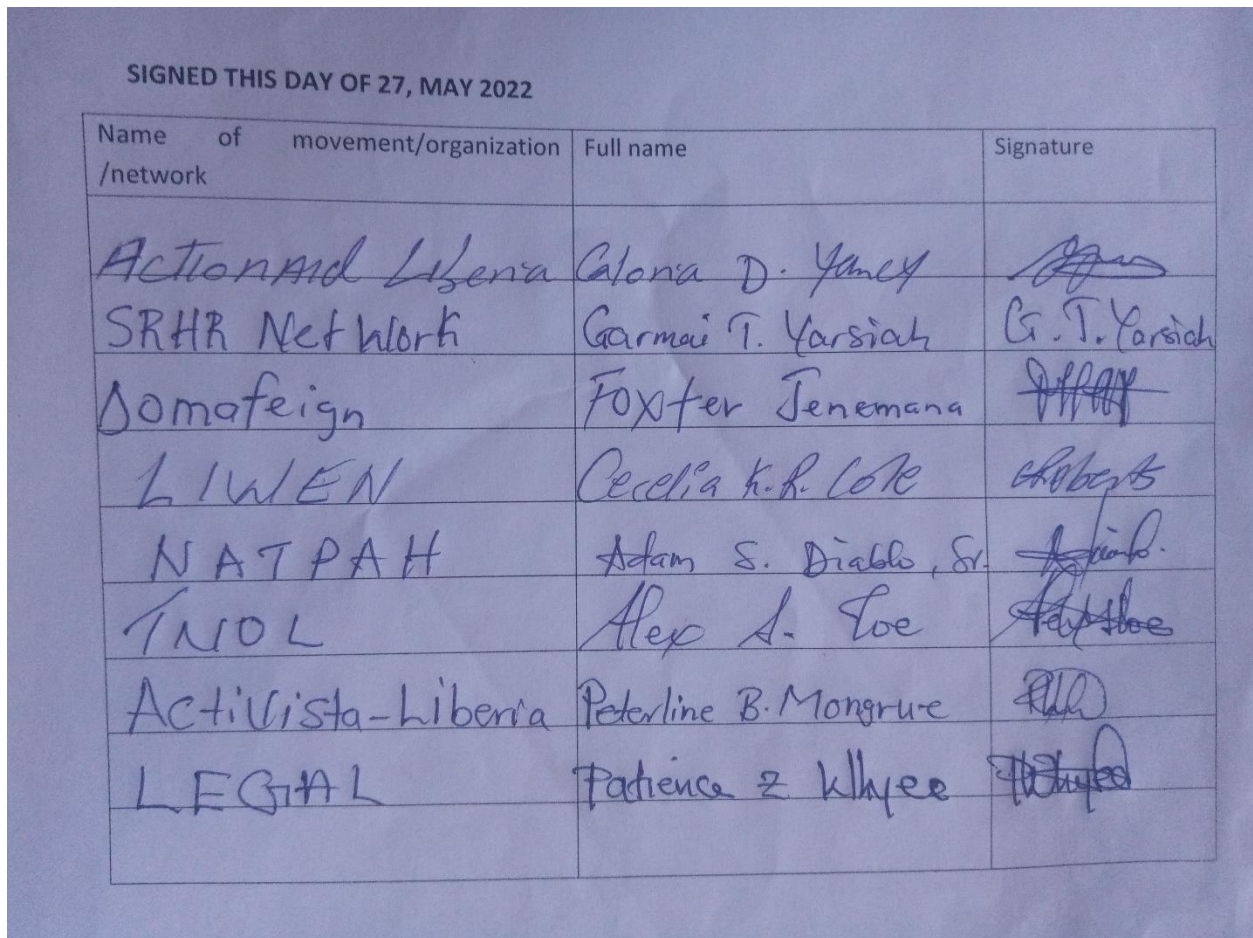 SIGNED THIS DAY OF 27, MAY 2022
Name of movement/organization Full name Signature
/network
ActionAid Liberia Calonia D. Yancy
SRHR NetWork Garmai T. Yarsiah G. T. Yarsiah
Domafeign Foxter Jenemana
LIWEN Cecelia K.R. Cole CRoberts
NATPAH Adam S. Diablo, Sr.
TNOL Alex A. Toe
Activista-Liberia Peterline B. Mongrue
LEGAL Patience Z